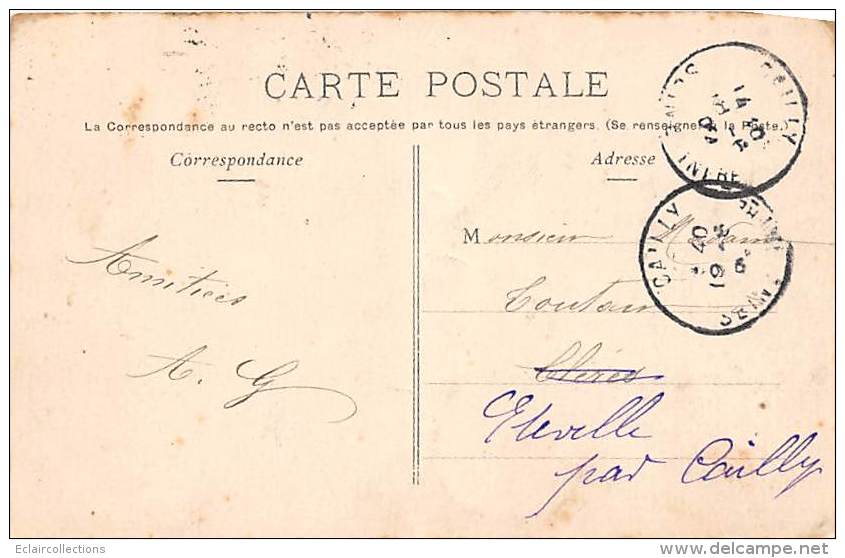 CARTE POSTALE
La Correspondance au recto n'est pas acceptée par tous les pays étrangers. (Se renseigner à la Poste.)
Correspondance
Adresse
Amitiés
A. G
Monsieur Madame
Toutain
Clères
Eteville
par Cailly
CAILLY
CAILLY
Eclaircollections
delcampe.net